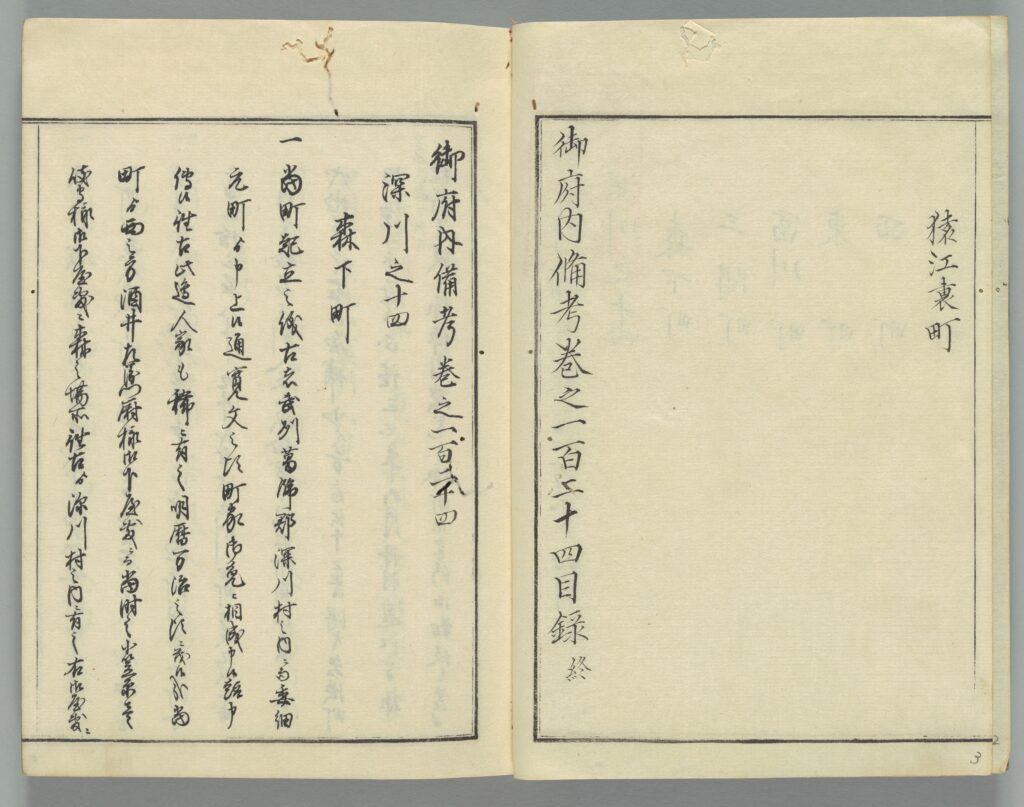 猿江裏町
御府内備考巻之一百二十四目録 終
御府内備考巻之一百二十四
深川之十四
森下町
一 当町起立之儀古来武列葛飾郡深川村之内ニ而委細
元町ゟ申上候通寛文之頃町家御免ニ相成申候趣申
伝候往古此辺人家も稀ニ有之明暦万治之頃ニ茂候哉当
町ゟ西之方酒井左衛門尉様御下屋敷ニ而当時之小笠原
様御下屋敷ニ森之場所往古ゟ深川村之内ニ有之右御屋敷ニ
3
2